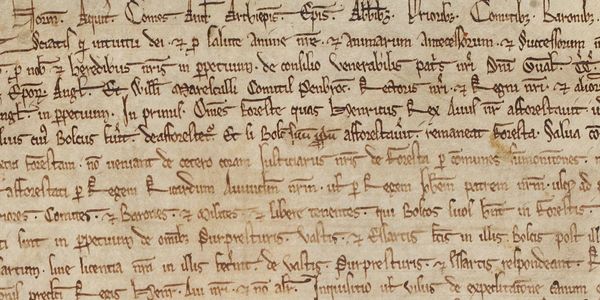 Norm. Aquit. Comes And. Archiepis. Epis. Abbib; Prioribus. Comitib; Baronib.
Sciatis q intuitu dei. & p salute anime nre. & animarum Antecessorum. & Successorum n
p nob & heredibus nris in ppetuum. de consilio venerabilis patris nri Dni Gual
Epor Angl. Et Willi Marescalli Comitis Penbroc. Rectoris nri. & Regni nri. & alior
Angl. in ppetuum. In primis. Omes Foreste quas Henricus Rex Avus nr afforestavit. u
illius cuj Boscus fuit. deafforestet. Et si Bosc suu ppu afforestavit. remaneat Foresta. Salva co
extra Forestam. no veniant de cetero coram Justiciariis nris de Foresta p comunes sumonitiones. n
afforestati p Regem Ricardum Avunclm nrm. ul p Regem Johem patrem nrm. usq ad p
Priores. Comites. & Barones. & Milites. & libere tenentes. qui Boscos suos hnt in Forestis.
ti sint in ppetuum de omib Purpresturis. Vastis. & Essartis fcis in illis Boscis post ill
artum. sine licentia nra in illis fecint. de vastis. Purpresturis. & Essartis respondeant. R
onis predicti Regis Henr. Avi nri. & no alr. Inquisitio ul visus de expeditatone canum